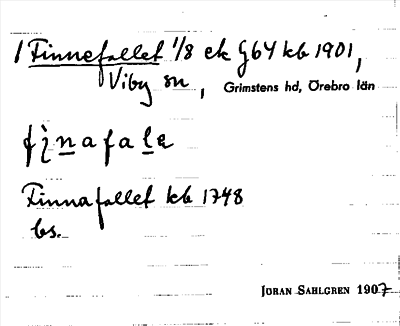 1 Finnefallet 1/8 ek G64 kb 1901,
Viby sn, Grimstens hd, Örebro län
fi̢nafalα
Finnafallet kb 1748
bs.
JÖRAN SAHLGREN 1907